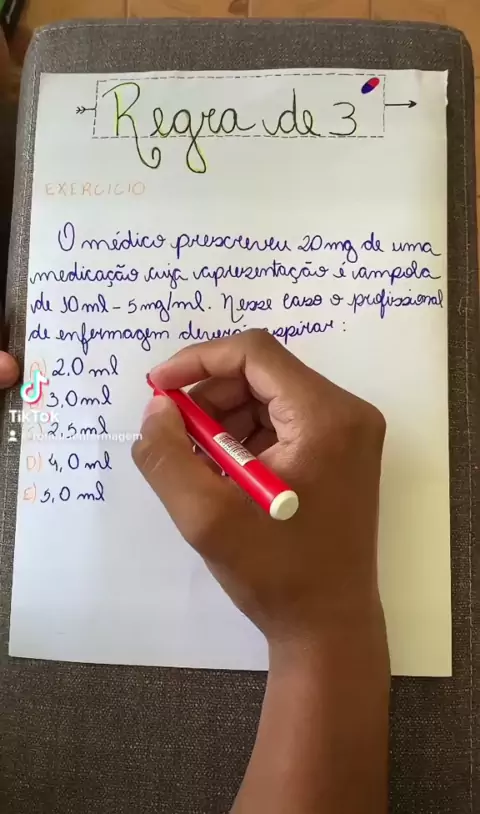 Regra de 3
EXERCICIO
O médico prescreveu 20mg de uma
medicação cuja apresentação é ampola
de 10ml - 5mg/ml. Nesse caso o profissional
de enfermagem deverá aspirar:
A) 2,0 ml
3,0ml
TikTok
C) 2,5 ml
D) 4,0 ml
E) 5,0 ml